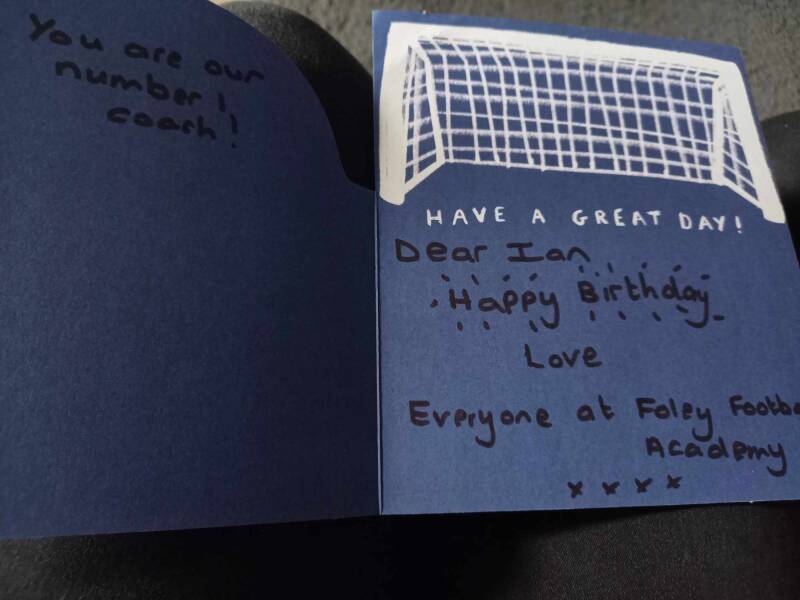 You are our
number 1
coach!
HAVE A GREAT DAY!
Dear Ian
Happy Birthday
Love
Everyone at Foley Footba
Academy
x x x x